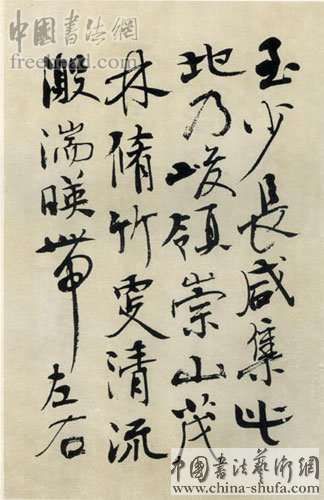 至少長咸集此
地乃峻領崇山茂
林脩竹清流
激湍暎帶左右
中國書法網
中國書法藝術網
www.china-shufa.com